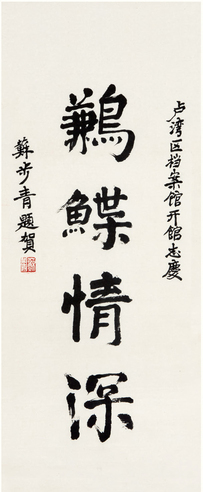 卢湾区档案馆开馆志慶
鶼鰈情深
蘇步青題贺